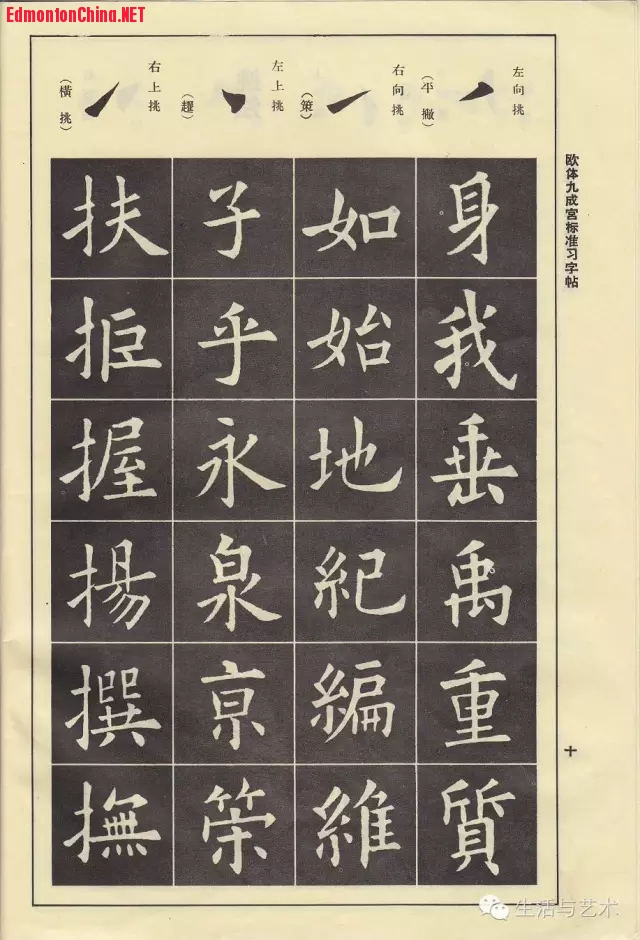 EdmontonChina.NET
欧体九成宫标准习字帖
十
左向挑
（平撇）
右向挑
（策）
左上挑
（趯）
右上挑
（橫挑）
身我垂禹重質
如始地紀編維
子乎永泉亰策
扶拒握揚撰撫
生活与艺术